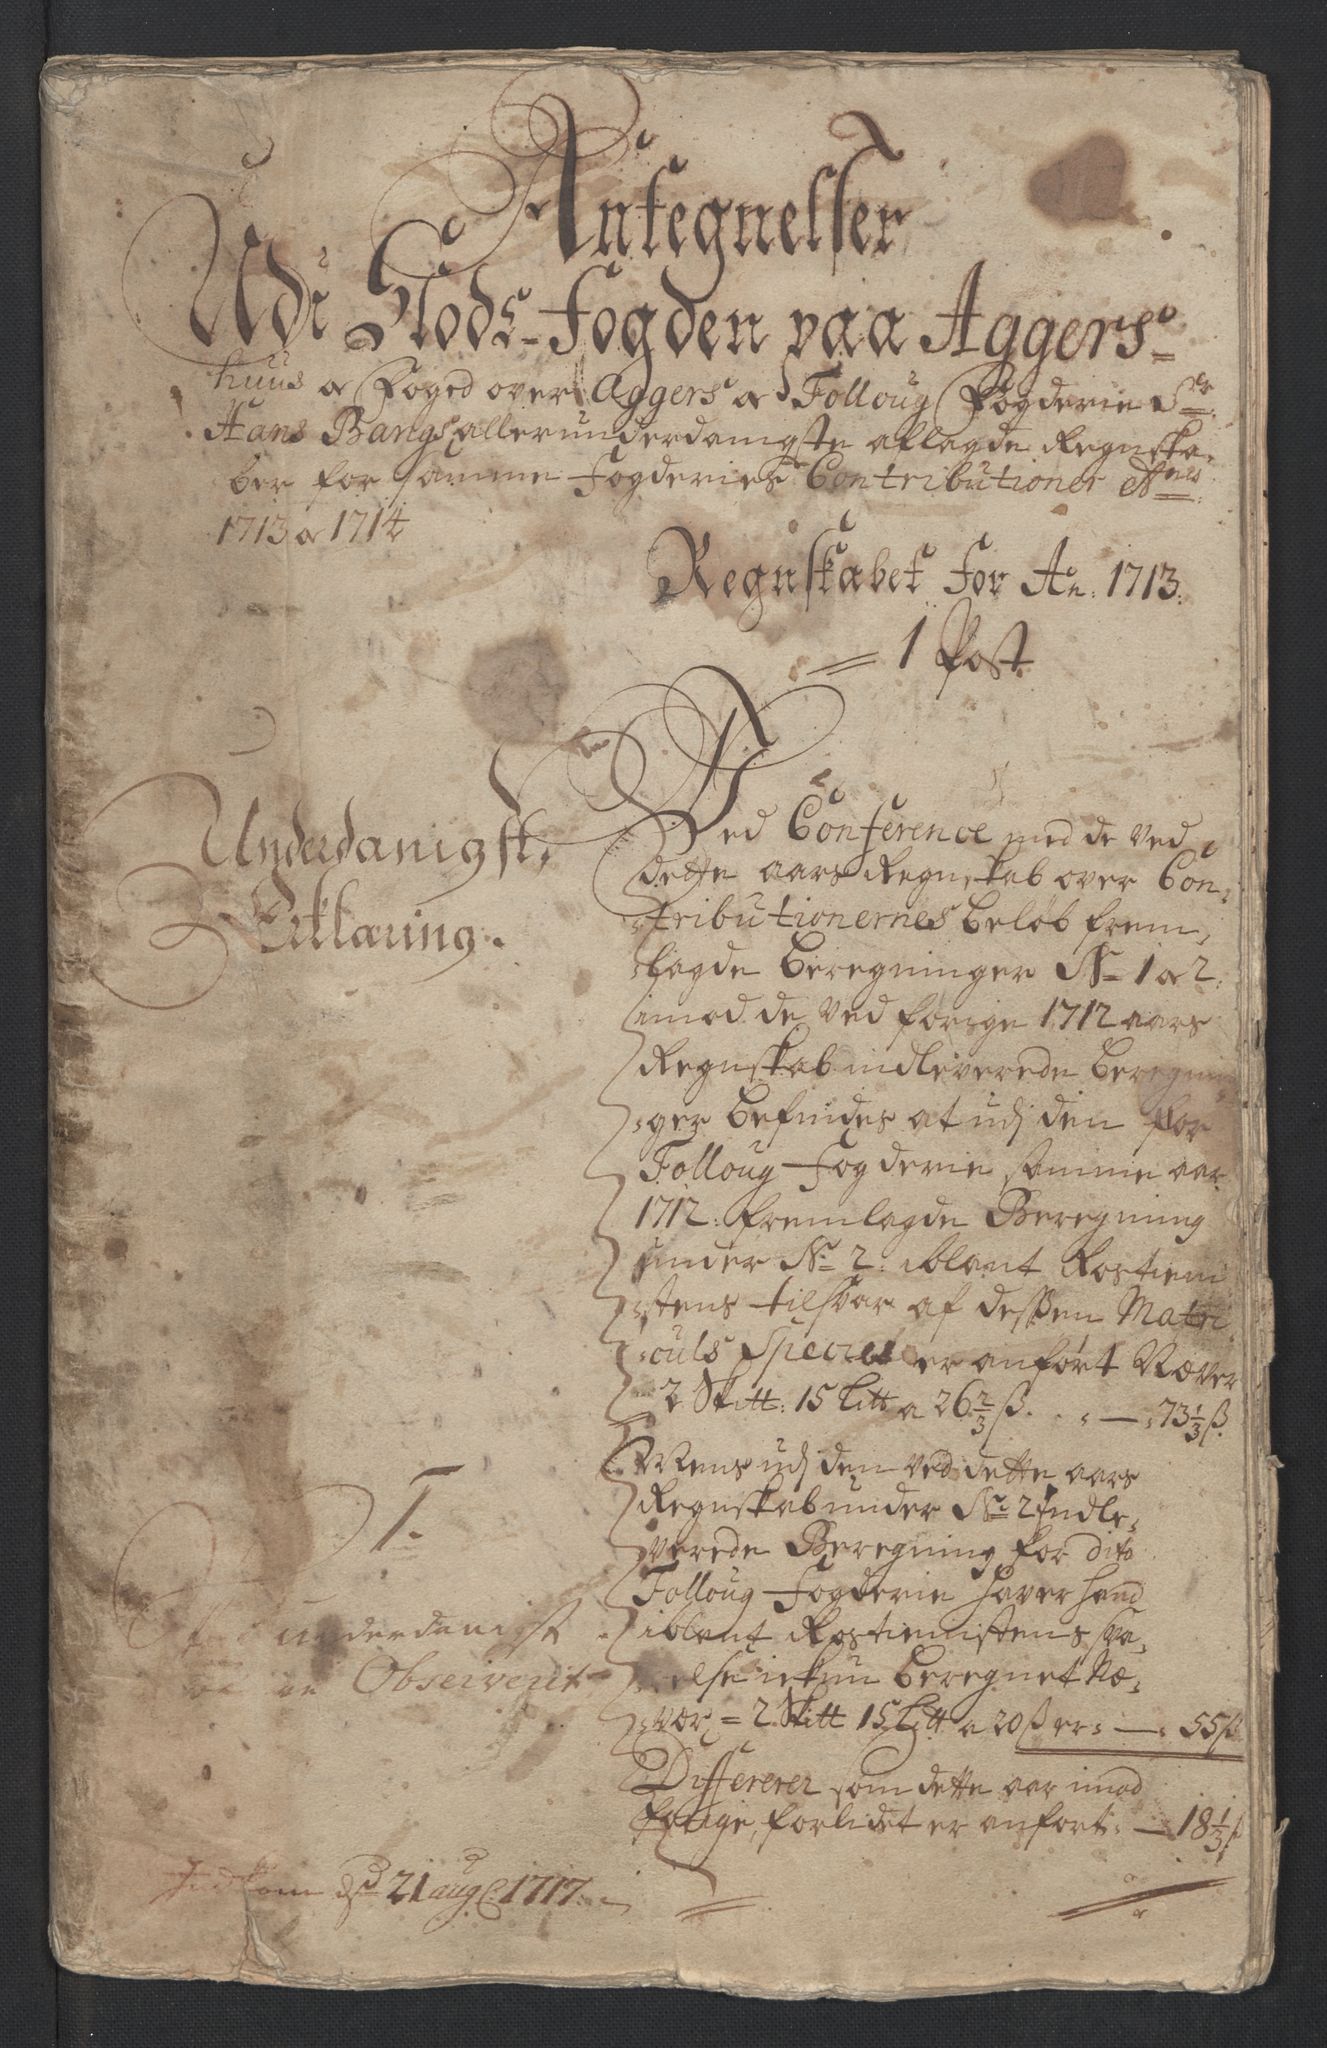 Antegnelsser
Udi Slods-Fogden paa Aggers-
huus & Foged over Aggers & Folloug Fogderie Sr.
Hans Bangs allerunderdanigste aflagde Regnska-
ber for samme Fogderies Contributioner
1713 & 1714
Regnskabet for An: 1713.
1 Post
Underdanigst
Erklæring.
Ved Conference med de ved
dette aars Regnskab over Con-
tributionernes beløb frem-
lagde beregninger No 1 & 2
imod de ved forige 1712 aars
Regnskab indleverede beregnin-
ger befindes at udj den for
Folloug Fogderie samme aar
1712: fremlagde Beregning
under No 2: iblant Rostieni-
stens tilsvar af dessen Matri-
culs Species er anført Næver
2 Skitt: 15 Litt a 26 2/3 ß. - 73 1/3 ß.
Mens udj den ved dette aars
Regnskab under No 2 Indle-
verede Beregning for dito
Folloug Fogderie haver hand
iblant Rostienistens sva-
relse ickun beregnet Næ-
ver = 2 Skitt 15 Litt a 20 ß er - 55 ß
Differerer som dette aar imod
forige, forlidet er anført: - 18 1/3 ß
1.
underdanigst
Observerit
Indkom dsd 21 aug: 1717.